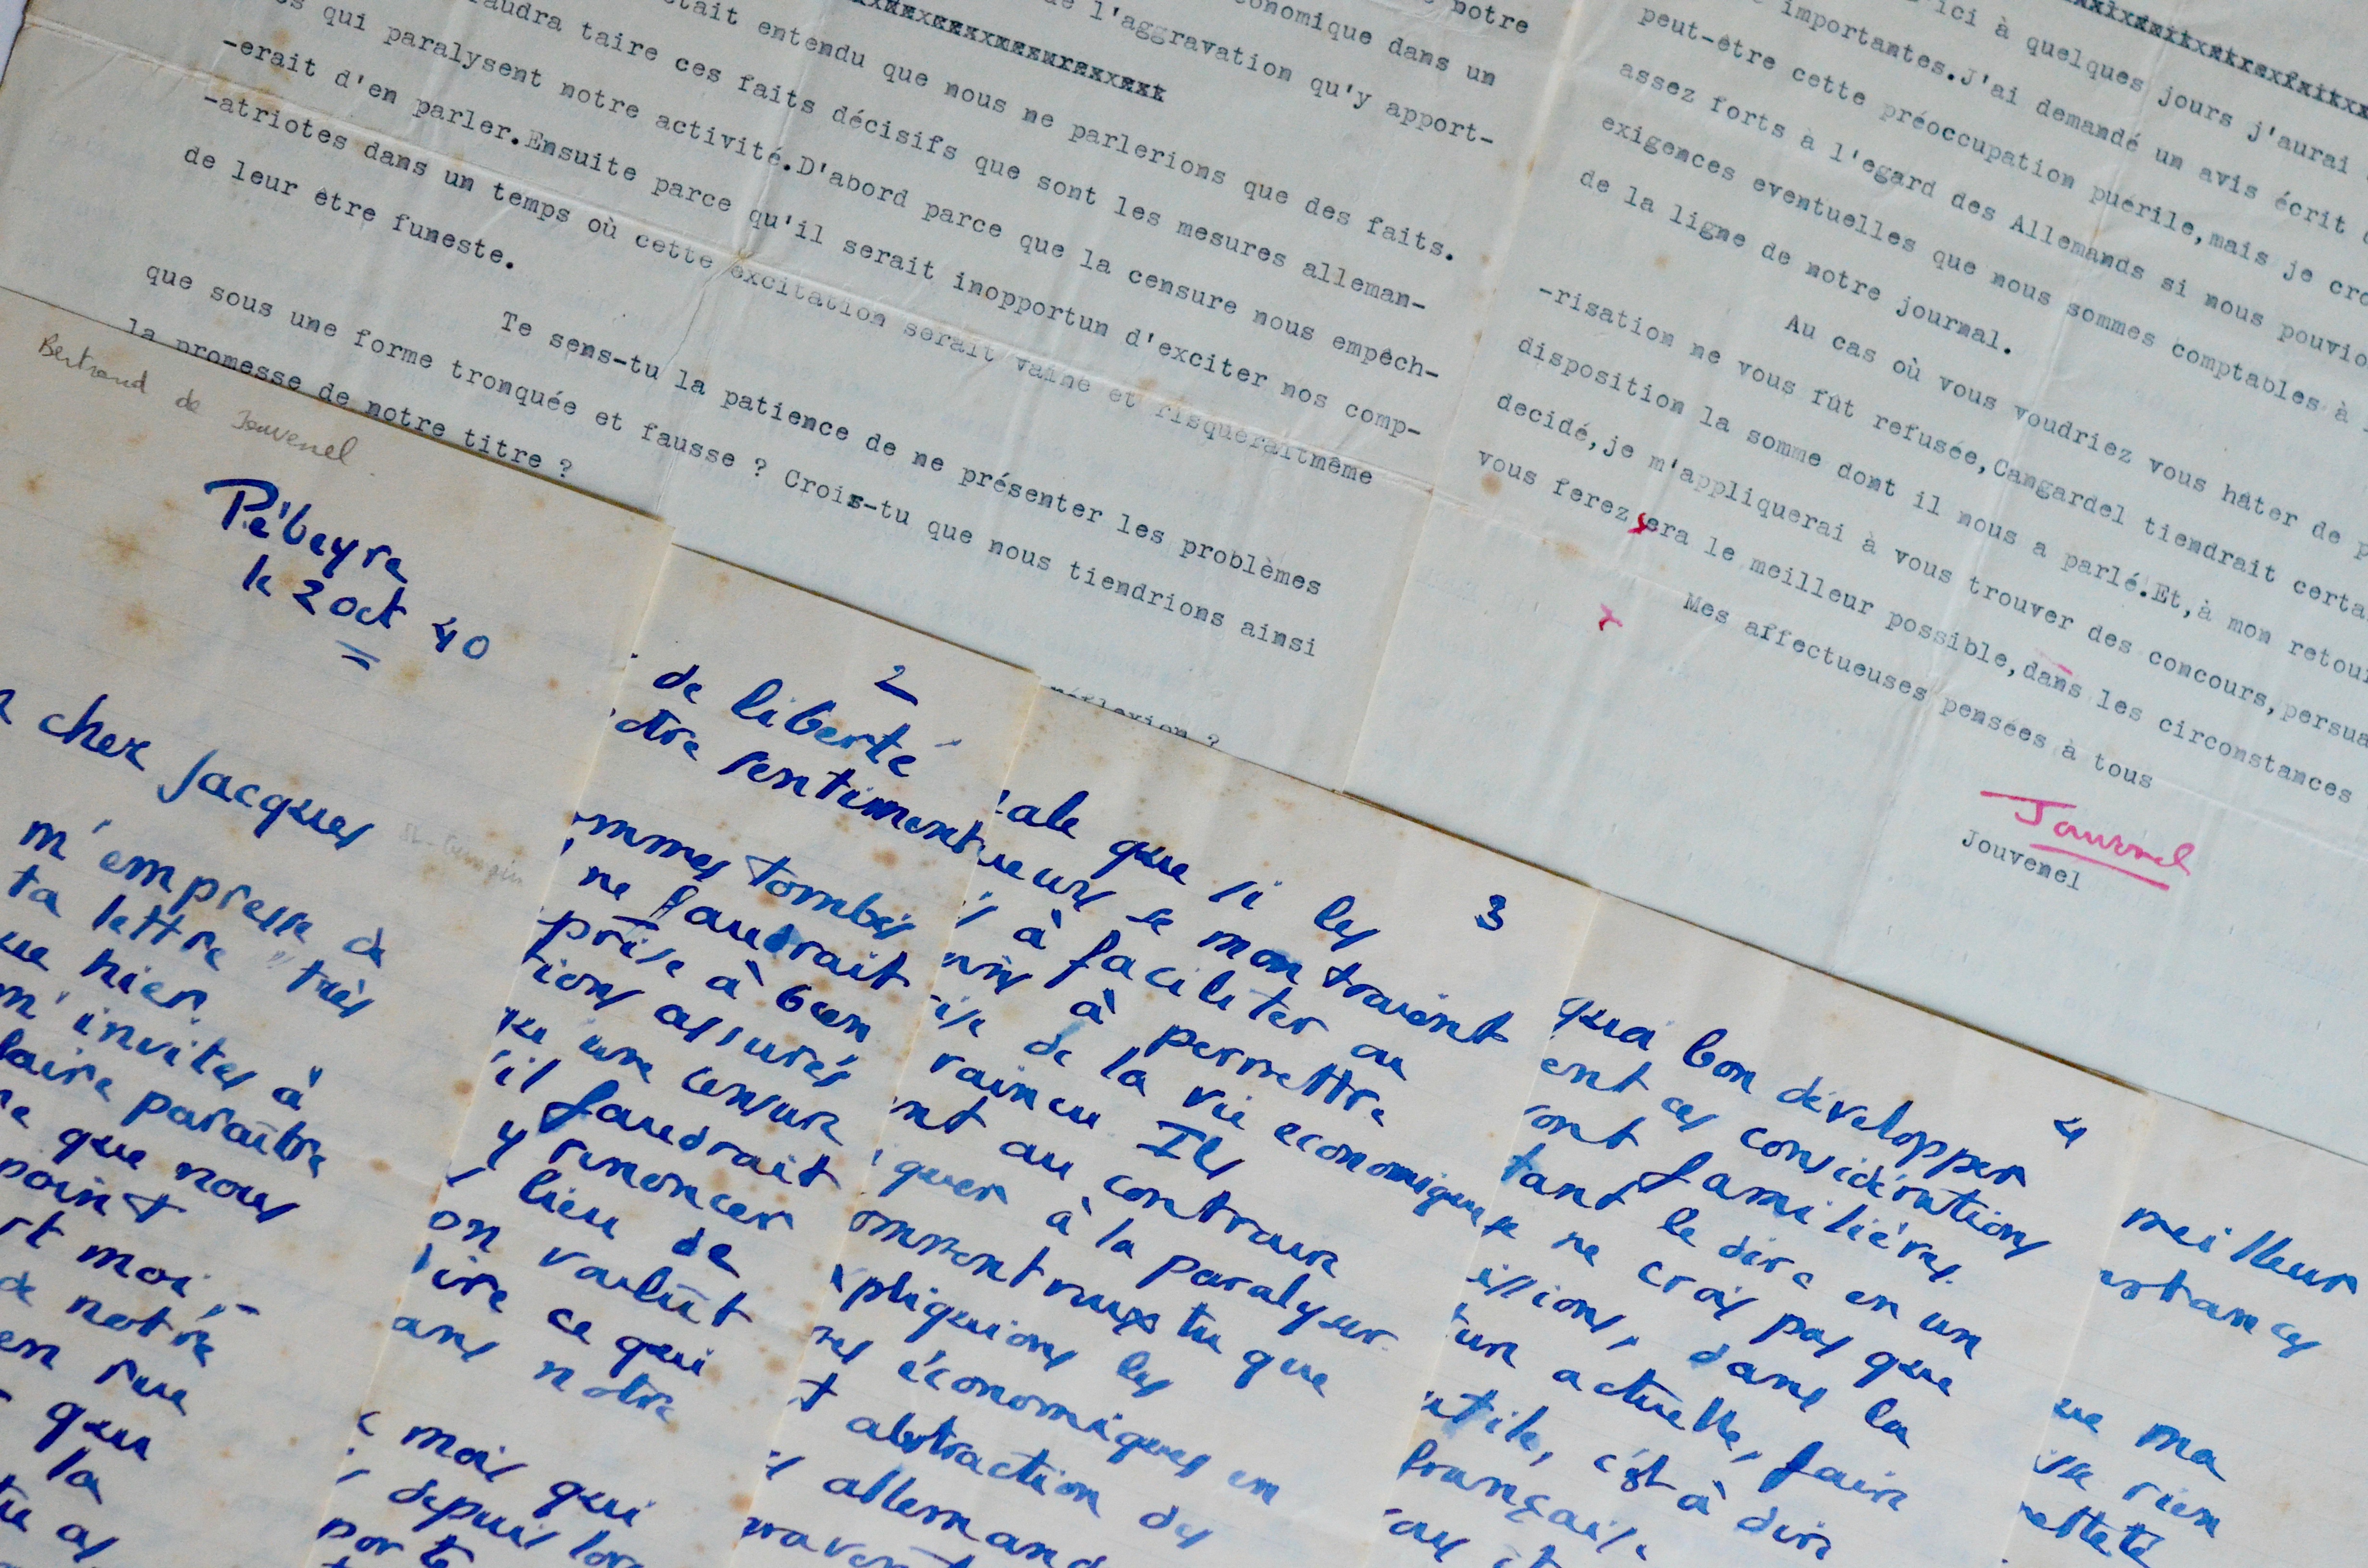 notre
onomique dans un
e l'aggravation qu'y apport-
était entendu que nous ne parlerions que des faits.
audra taire ces faits décisifs que sont les mesures alleman-
es qui paralysent notre activité.D'abord parce que la censure nous empêch-
-erait d'en parler.Ensuite parce qu'il serait inopportun d'exciter nos comp-
-atriotes dans un temps où cette excitation serait vaine et risqueraitmême
de leur être funeste.
Te sens-tu la patience de ne présenter les problèmes
que sous une forme tronquée et fausse ? Crois-tu que nous tiendrions ainsi
la promesse de notre titre ?
réflexion ?
'ici à quelques jours j'aurai
importantes.J'ai demandé un avis écrit
peut-être cette préoccupation puérile,mais je cro
assez forts à l'egard des Allemands si nous pouvio
exigences eventuelles que nous sommes comptables à
de la ligne de notre journal.
Au cas où vous voudriez vous hâter de p
-risation ne vous fût refusée,Cangardel tiendrait certa
disposition la somme dont il nous a parlé.Et,à mon retour
decidé,je m'appliquerai à vous trouver des concours,persua
vous ferez sera le meilleur possible,dans les circonstances
Mes affectueuses pensées à tous
Jouvenel
Jouvenel
Bertrand de Jouvenel.
Pébeyre
le 2 Oct 40
cher Jacques
m'empresse de
ta lettre très
ue hier.
m'invites à
faire paraître
e que nous
point
rt moi,
de notre
en rue
qui
la
tu as
2
de liberté
otre sentiment
ommes tombés
ne faudrait
prise à bien
tions assurés
que une censure
'il faudrait
y renoncer
lieu de
on voulût
dire ce qui
ans notre
mois qui
depuis lors
porte
3
ale que si les
ueurs se montraient
à faciliter ou
à permettre
ise de la vie économique
vaincu Ils
nt au contraire
quer à la paralyser.
omment veux tu que
xpliquions les
mes économiques en
t abstraction des
allemand
4
quoi bon développer
ent ces considérations
sont familières.
tant le dire en un
je ne crois pas que
issions, dans la
ture actuelle, faire
utile, c'est à dire
française
meilleur
nstances
ue ma
ise rien
netteté